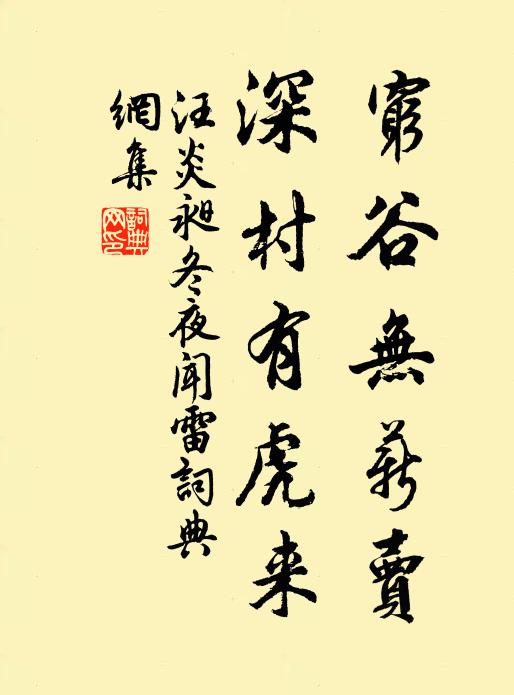 窮谷無薪賣
深村有虎来
汪炎昶冬夜聞雷詞典
網集
詞典
网印